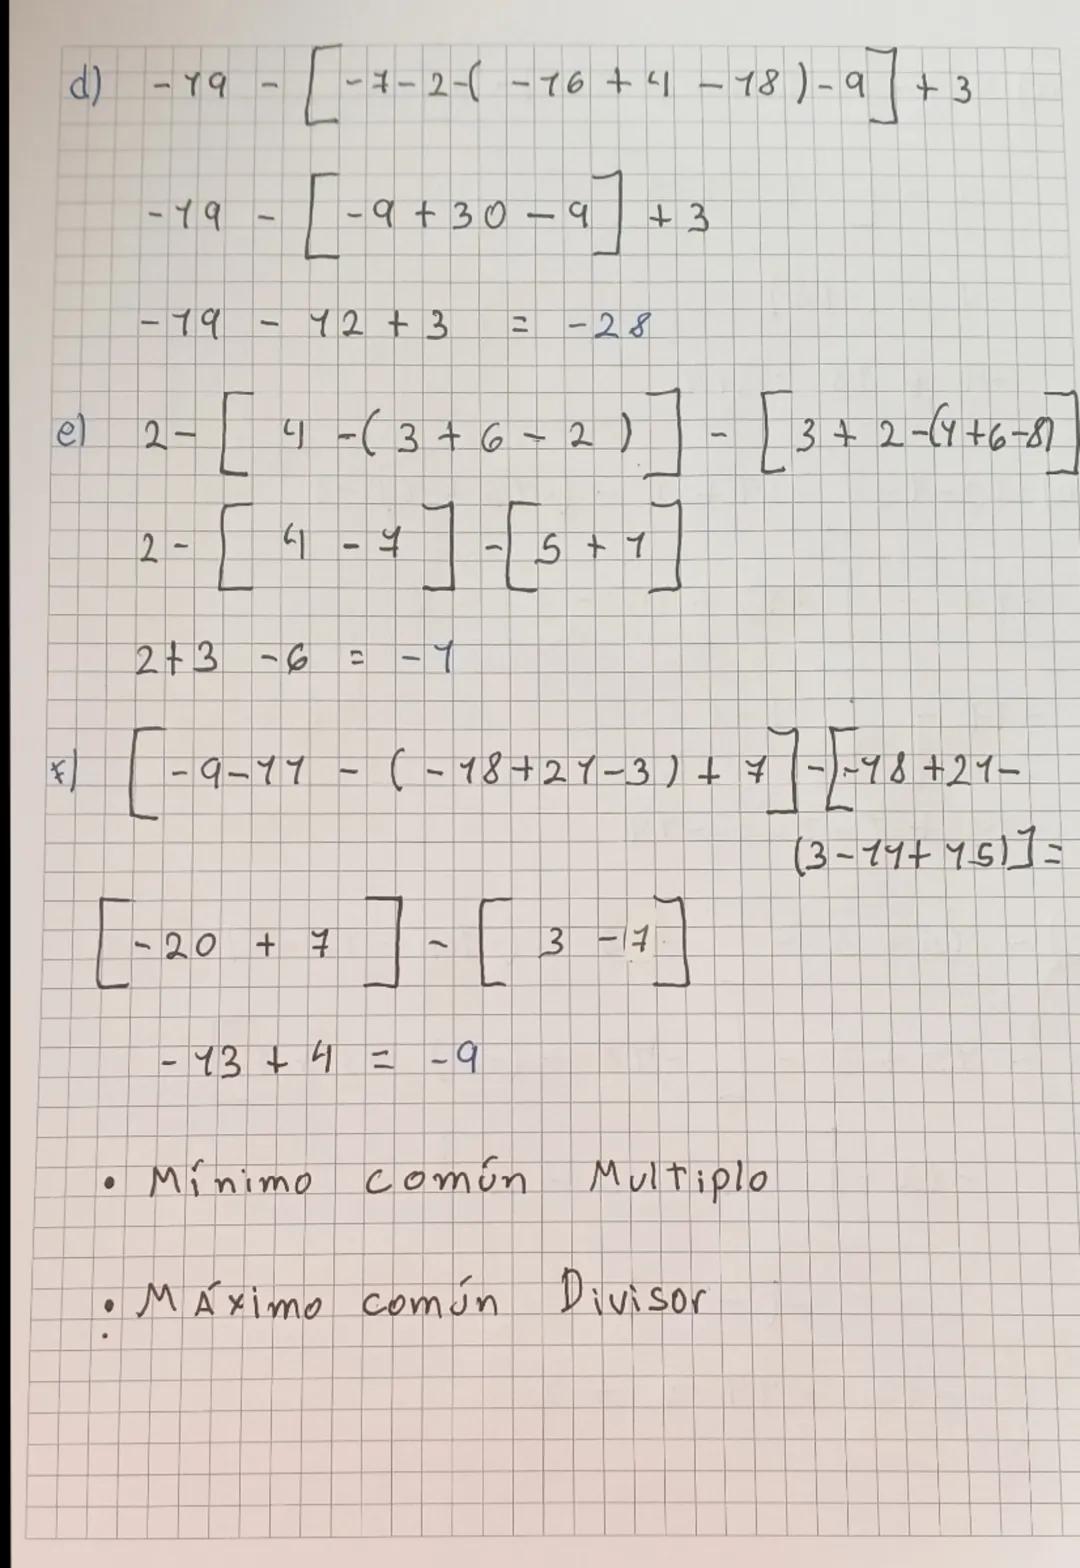 d) -19 - [-7-2-(-16+4-18)-9]+3
-19 - [-9+30-9] +3
-19 - 12 + 3 = -28
e) 2-[ 4 -(3+6-2)] - [3+2-(1+6-8)]
2-[ 4 - 7 ] -[5 + 1]
2+3 -6 = -1
f) [-9-11 - (-18+21-3)+7]-[-18+21-
(3-11+15)]=
[-20 + 7 ] - [ 3 -7]
-13 + 4 = -9
• Mínimo común Multiplo
• Máximo común Divisor